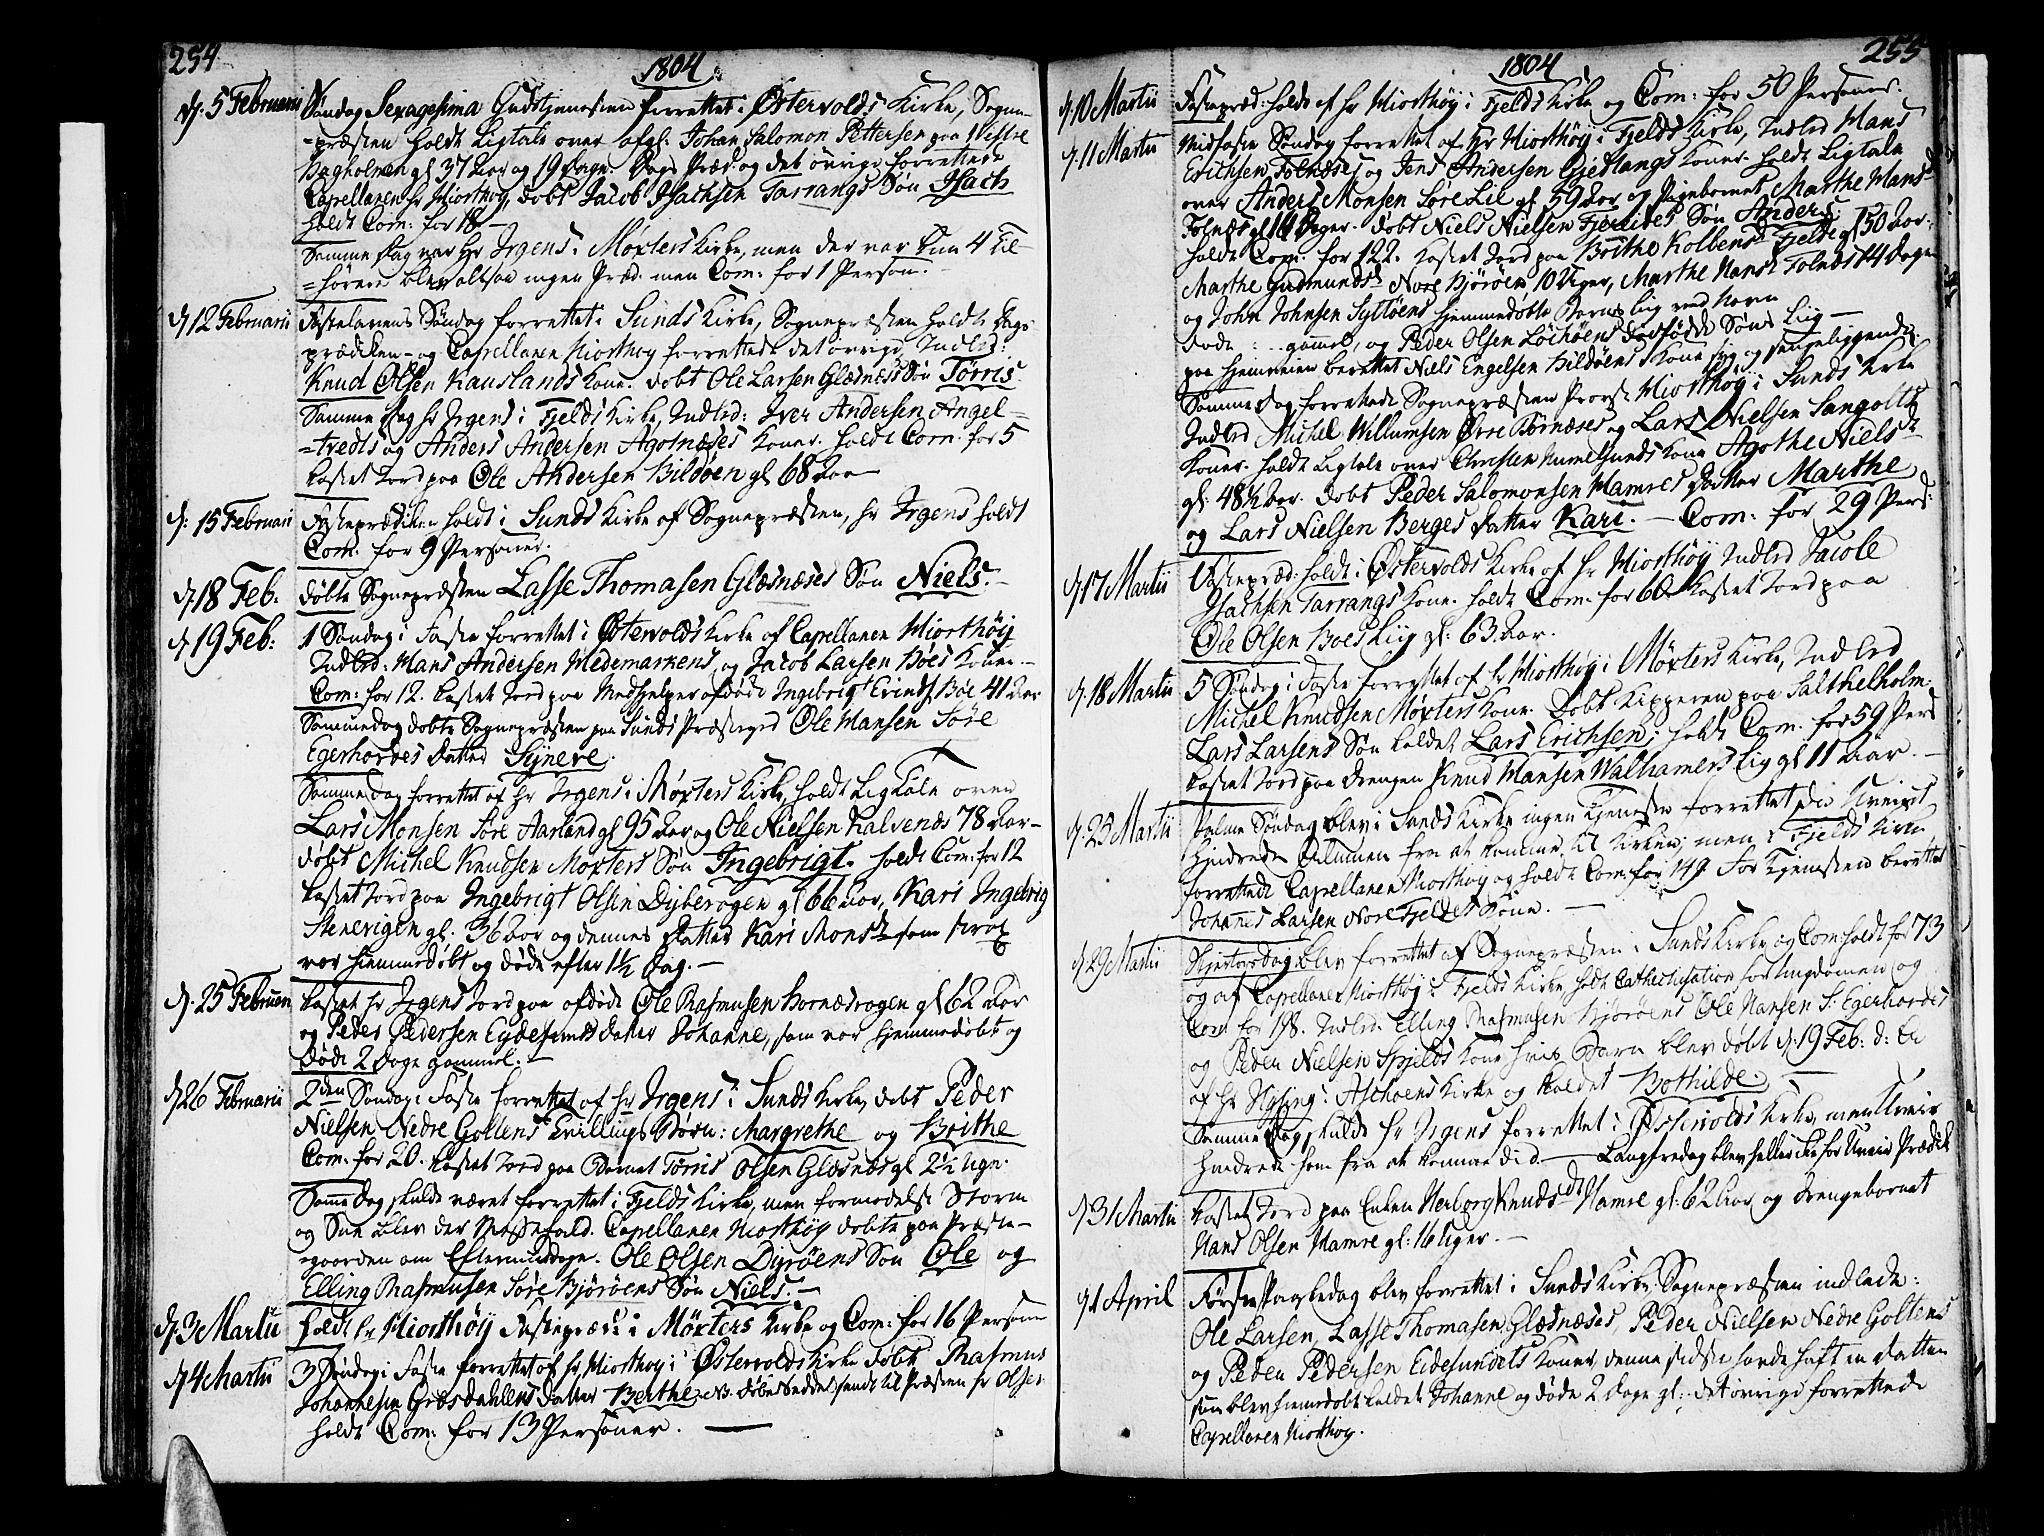 254
1804
d. 5 Februarii Søndag Sexagesima Gudstjenesten forrettet i Østervolds Kirke, Sogne-
-præsten holdt Ligtale over afg: Johan Salomon Pettersen paa Vestre
Bagholmen gl 37 Aar og 19 Dage. Dags Præd: og det øvrige forrettede
Capellanen hr Miorthøy, døbt Jacob Isachsen Tarrangs Søn Isach
holdt Com: for 18 -
Samme Dag var hr Irgens i Møxters Kirke, men der var kun 4 Til-
=hørere blev altsaa ingen Præd: men Com: for 1 Person. -
d 12 Februarii Fastelavens Søndag forrettet i Sunds Kirke, Sognepræsten holdt Dags-
prædiken - og Capellanen Miorthøy forrettede det øvrige, Indled:
Knud Olsen Kauslands Kone. døbt Ole Larsen Glæsnæs Søn Tørris
Samme Dag hr Irgens i Fjelds Kirke, Indled: Iver Andersen Angel-
=tvedts og Anders Andersen Agotnæses Koner. holdt Com: for 5
kastet Jord paa Ole Andersen Bildøen gl 68 Aar
d: 15 Februarii Fasteprædiken holdt i Sunds Kirke af Sognepræsten, hr Irgens holdt
Com: for 9 Personer.
d 18 Feb: døbte Sognepræsten Lasse Thomasen Glæsnæses Søn Niels. -
d 19 Feb: 1 Søndag i Faste forrettet i Østervolds Kirke af Capellanen Miorthøy
Indled: Hans Andersen Medemarkens og Jacob Larsen Bøes Koner -
Com: for 12. kastet Jord paa Medhjelper afdøde Ingebrigt Erinds: Bøe 41 Aar
Sammedag døbte Sognepræsten paa Sunds Præstegrd Ole Hansen Søre
Egerhordes Datter Synneve.
Samme Dag forrettet af hr Irgens i Møxters Kirke, holdt Ligtale over
Lars Monsen Søre Aarland gl 95 Aar og Ole Nielsen Kalvenæs 78 Aar -
døbt Michel Knudsen Møxters Søn Ingebrigt. holdt Com: for 12
kastet Jord paa Ingebrigt Olsen Dyberogen gl 66 Aar, Kari Ingebrig
Stenevigen gl. 36 Aar og dennes Datter Kari Monsd som strax
var hiemmedøbt og døde efter 1½ Dag. -
d. 25 Februarii kastet hr Irgens Jord paa afdøde Ole Rasmusen Hornæsvogen gl 62 Aar
og Peder Pedersen Eydesunds datter Johanne, som var hjemmedøbt og
døde 2 Dage gammel. -
d 26 Februarii 2den Søndag i Faste forrettet af hr Irgens i Sunds Kirke, døbt Peder
Nielsen Nedre Goltens Tvillings Børn: Margrethe og Brithe
Com: for 20. kastet Jord paa Barnet Tørris Olsen Glæsnæs gl 2½ Ugr.
Samme Dag skulde været forrettet i Fjelds Kirke, men formedelst Storm
og Snee blev der Messefald. Capellanen Miorthøy døbte paa Præste-
-gaarden om Eftermiddagen. Ole Olsen Dyrøens Søn Ole og
Elling Rasmusen Søre Bjørøens Søn Niels. -
d 3 Martii holdt hr Miorthøy Fastepræd: i Møxters Kirke og Com: for 16 Personer
d 4 Martii 3 Søndag i Faste forrettet af hr Miorthøy i Østervolds Kirke døbt Rasmus
Johannesen Grøsdahlens datter Berthe NB. døbeseddel sendt til Præsten hr Olsen
holdt Com: for 13 Personer. -
1804
255
d 10 Martii Fastepræd: holdt af hr Miorthøy i Fjelds Kirke og Com: for 50 Personer.
d. 11 Martii Midfaste Søndag forrettet af hr Miorthøy i Fjelds Kirke, Indled Hans
Erichsen Folnæses og Jens Andersen Gjetlangs Koner. holdt Ligtale
over Anders Monsen Søre Lie gl 59 Aar og Pigebarnet Marthe Hansd
Folnæs gl 14 Dage. døbt Niels Nielsen Fjereides Søn Anders
holdt Com: for 122. kastet Jord paa Brithe Kolbensd Fjelde gl 50 Aar.
Marthe Gudmundsd Nore Bjørøen 10 Uger, Marthe Hansd Folnæs 14 Dage
og John Johnsen Syltøens hjemmedøbte Barns liig ved Navn
døde : . . gammel, og Peder Olsen Løchøens dødfødde Søns Liig -
paa hjemveien berettet Niels Engelsen Bildøens Kone syg og sengeliggende.
Samme Dag forrettede Sognepræsten Provst Miorthøy i Sunds Kirke
Indled Michel Willumsen Øvre Børnæses og Lars Nielsen Sangolts
Koner. holdt Ligtale over Christen Hummelsunds Kone Agothe Nielsd
gl: 48½ Aar. døbt Peder Salomonsen Hamres Datter Marthe
og Lars Nielsen Berges datter Kari. - Com: for 29 Pers:
d 17 Martii Fastepræd: holdt i Østervolds Kirke af hr Miorthøy Indled Jacob
Isachsen Tarrangs Kone. holdt Com: for 60. kastet Jord paa
Ole Olsen Boes Liig gl: 63 Aar.
d. 18 Martii 5 Søndag i Faste forrettet af hr Miorthøy i Møxters Kirke, Indled
Michel Knudsen Møxters Kone. Døbt Kipperen paa Salthelholm
Lars Larsens Søn kaldet Lars Erichsen; holdt Com: for 59 Pers
kastet Jord paa drengen Knud Hansen Walhamers Liig gl 11 Aar -
d 25 Martii Palme Søndag blev i Sunds Kirke ingen Tjeneste forrettet da Uveiret
hindrede Almuen fra at komme til Kirken; men i Fjelds Kirke
forrettede Capellanen Miorthøy og holdt Com: for 149 For Tjenesten berettet
Johannes Larsen Nore Fjeldes Kone. -
d 29 Martii Skjertorsdag blev forrettet af Sognepræsten i Sunds Kirke og Com: holdt for 73
og af Capellanen Miorthøy i Fjelds Kirke, holdt Cathechisation for Ungdomen og
Com: for 198. Indled: Elling Rasmusen Bjørøens Ole Hansen S: Egerhordes
og Peder Nielsen Spjelds Kone hvis Barn blev døbt d. 19 Feb: d: A:
af hr Hysing i Aschøens Kirke og kaldet Bothilde. -
Samme Dag skulde hr Irgens forrettet i Østervolds Kirke, men Uveir
hindrede ham fra at komme did. - Langfredag blev heller icke for Uveir Prædik
d 31 Martii kastet Jord paa Enken Herborg Knudsdt Hamre gl: 62 Aar og drengebarnet
Hans Olsen Hamre gl: 16 Uger. -
d 1 April Første Paaskedag blev forrettet i Sunds Kirke, Sognepræsten indlede:
Ole Larsen, Lasse Thomasen Glæsnæses, Peder Nielsen Nedre Goltens
og Peder Pedersen Eidesundets Koner, denne sidste havde haft en datter
som blev hiemedøbt kaldet Johanne og døde 2 Dage gl: det øvrige forrettede
Capellanen Miorthøy.